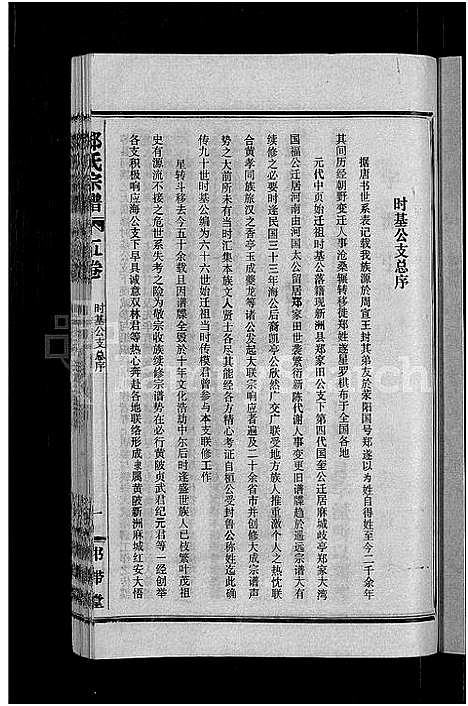 时基公支总序
据唐书世系表记载我族源于周宣王封其弟友於荥阳国号郑遂以为姓自得姓至今二千余年
其间历经朝野变迁人事沧桑辗转移徙郑姓遂星罗棋布于全国各地
元代中页始迁祖时基公落籍现新洲县郑家田公支下第四代国奎公迁居麻城岐亭郑家大湾
国福公迁居河南由河国太公留居郑家田世袭繁衍新陈代谢人事变更旧谱牒趋於遥远宗谱大有
续修之必要时逢民国三十三年海公后裔凯亭公欣然广交广联受地方族人推重激个人之热忱联
合黄孝同族旅汉之香亭玉成夔龙等诸公发起大联宗响应者遍及二十余省市并创修大成宗谱声
势之大前所未有当时汇集本族文人贤士各尽其能经各方精心考证自桓公受封鲁公称姓迄此确
传九十世时基公编为六十六世始迁祖当时传模君曾参与本支联修工作
星转斗移去今五十余载且因谱牒全毁於十年文化浩劫中尔后时逢盛世族人已枝繁叶茂祖
史有源流不接之危世系失考之险为敬宗收族续修宗谱势在必行黄陂贞武君纪元君等一经创举
各支积极响应海公支下早具诚意双林君等热心奔赴各地联络形成隶属黄陂新洲麻城红安大悟
郑氏宗谱
卷五
时基公支总序
一